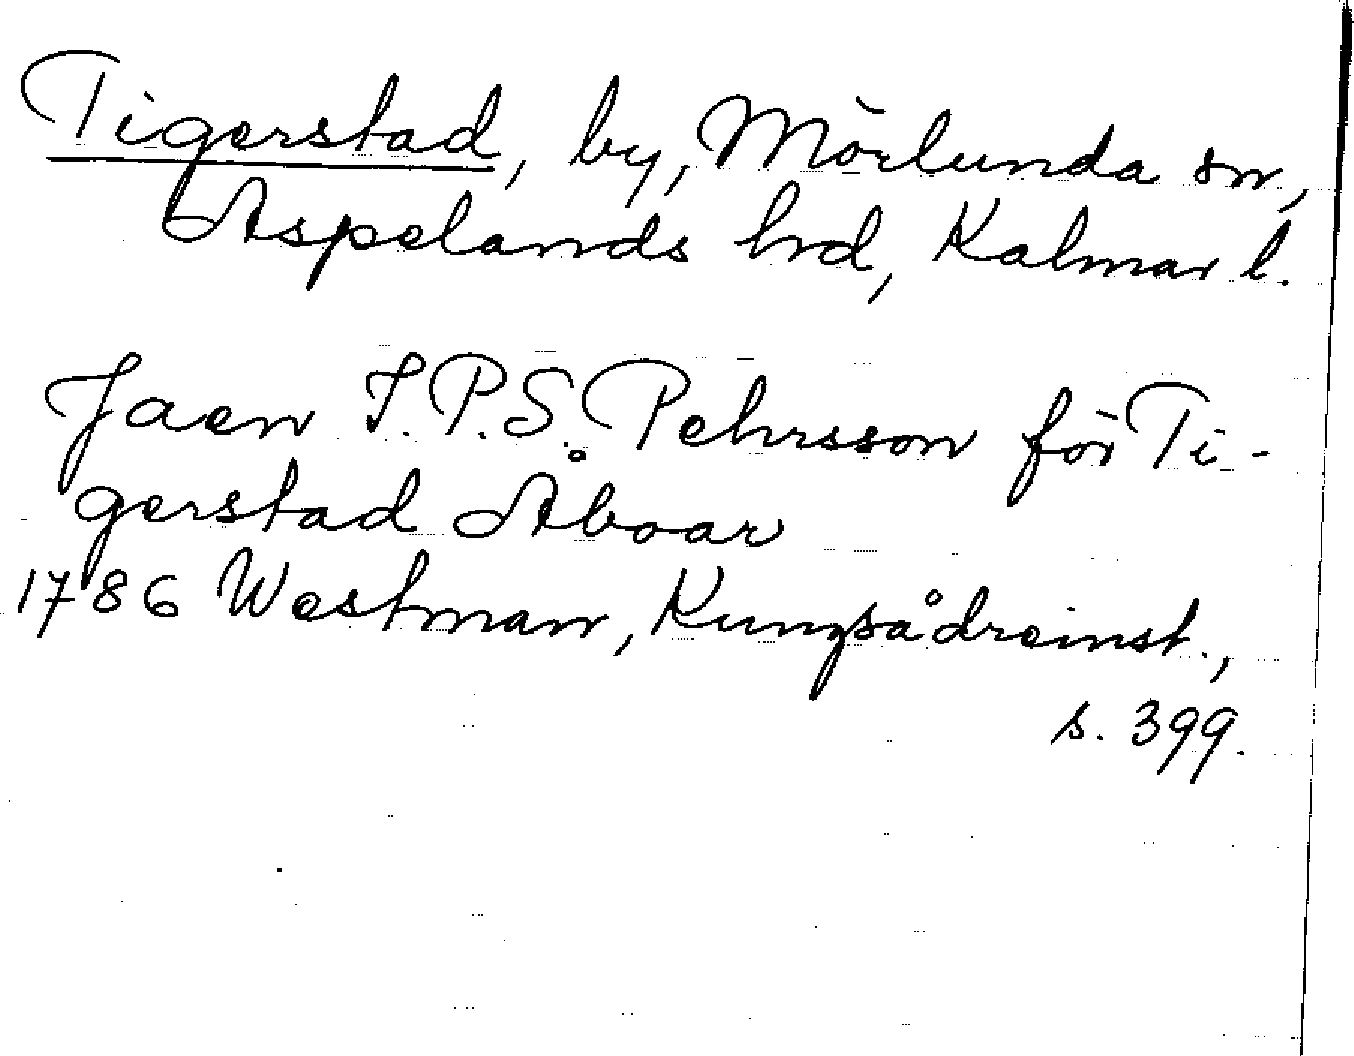 Tigerstad, by, Mörlunda sn,
Aspelands hrd, Kalmar l.
Jaen I.P.S. Pehrsson för Ti-
gerstad Åboar
1786 Westman, Kungsådreinst.,
s. 399.